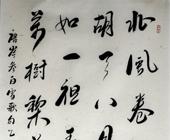 北風卷
胡天八月
如一夜春
萬樹梨
唐岑参白雪歌句乙